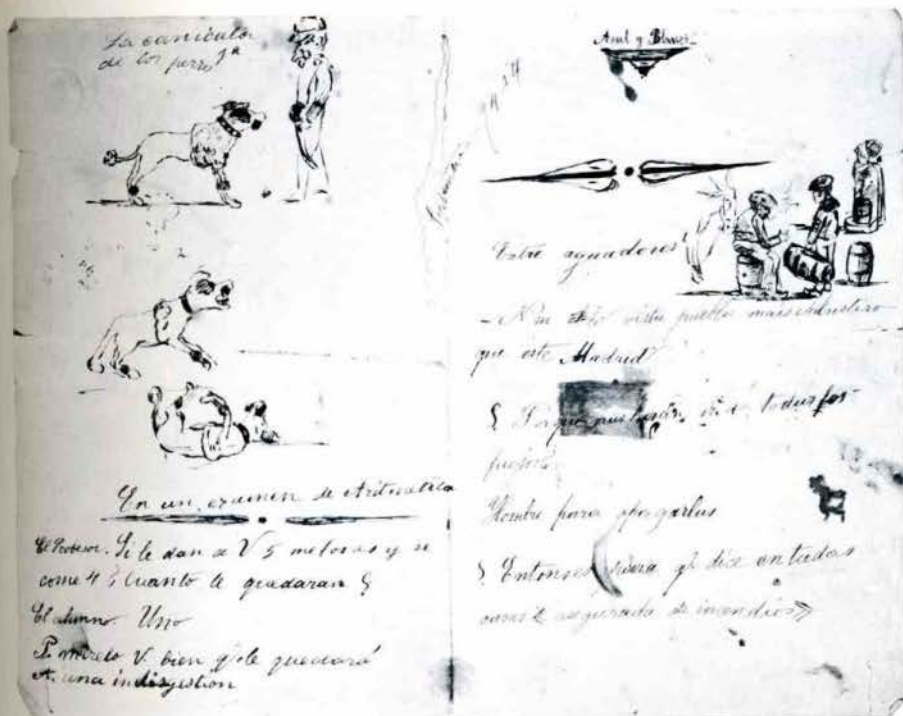 La canícula
de los perros
En un examen de Aritmetica
El Profesor. Si le dan a V 5 melones y se
come 4 ¿ Cuanto le quedaran ?
El alumno Uno
P. mirelo V. bien q. le quedará
A. una indisgestion
Azul y Blanco
Entre aguadores
- Nun visto pueblo mais
que este Madrid
¿ Porque nus en todus los
Hombre para apagarlus
¿ Entonses para q. dise en todas
casas asegurada de incendios